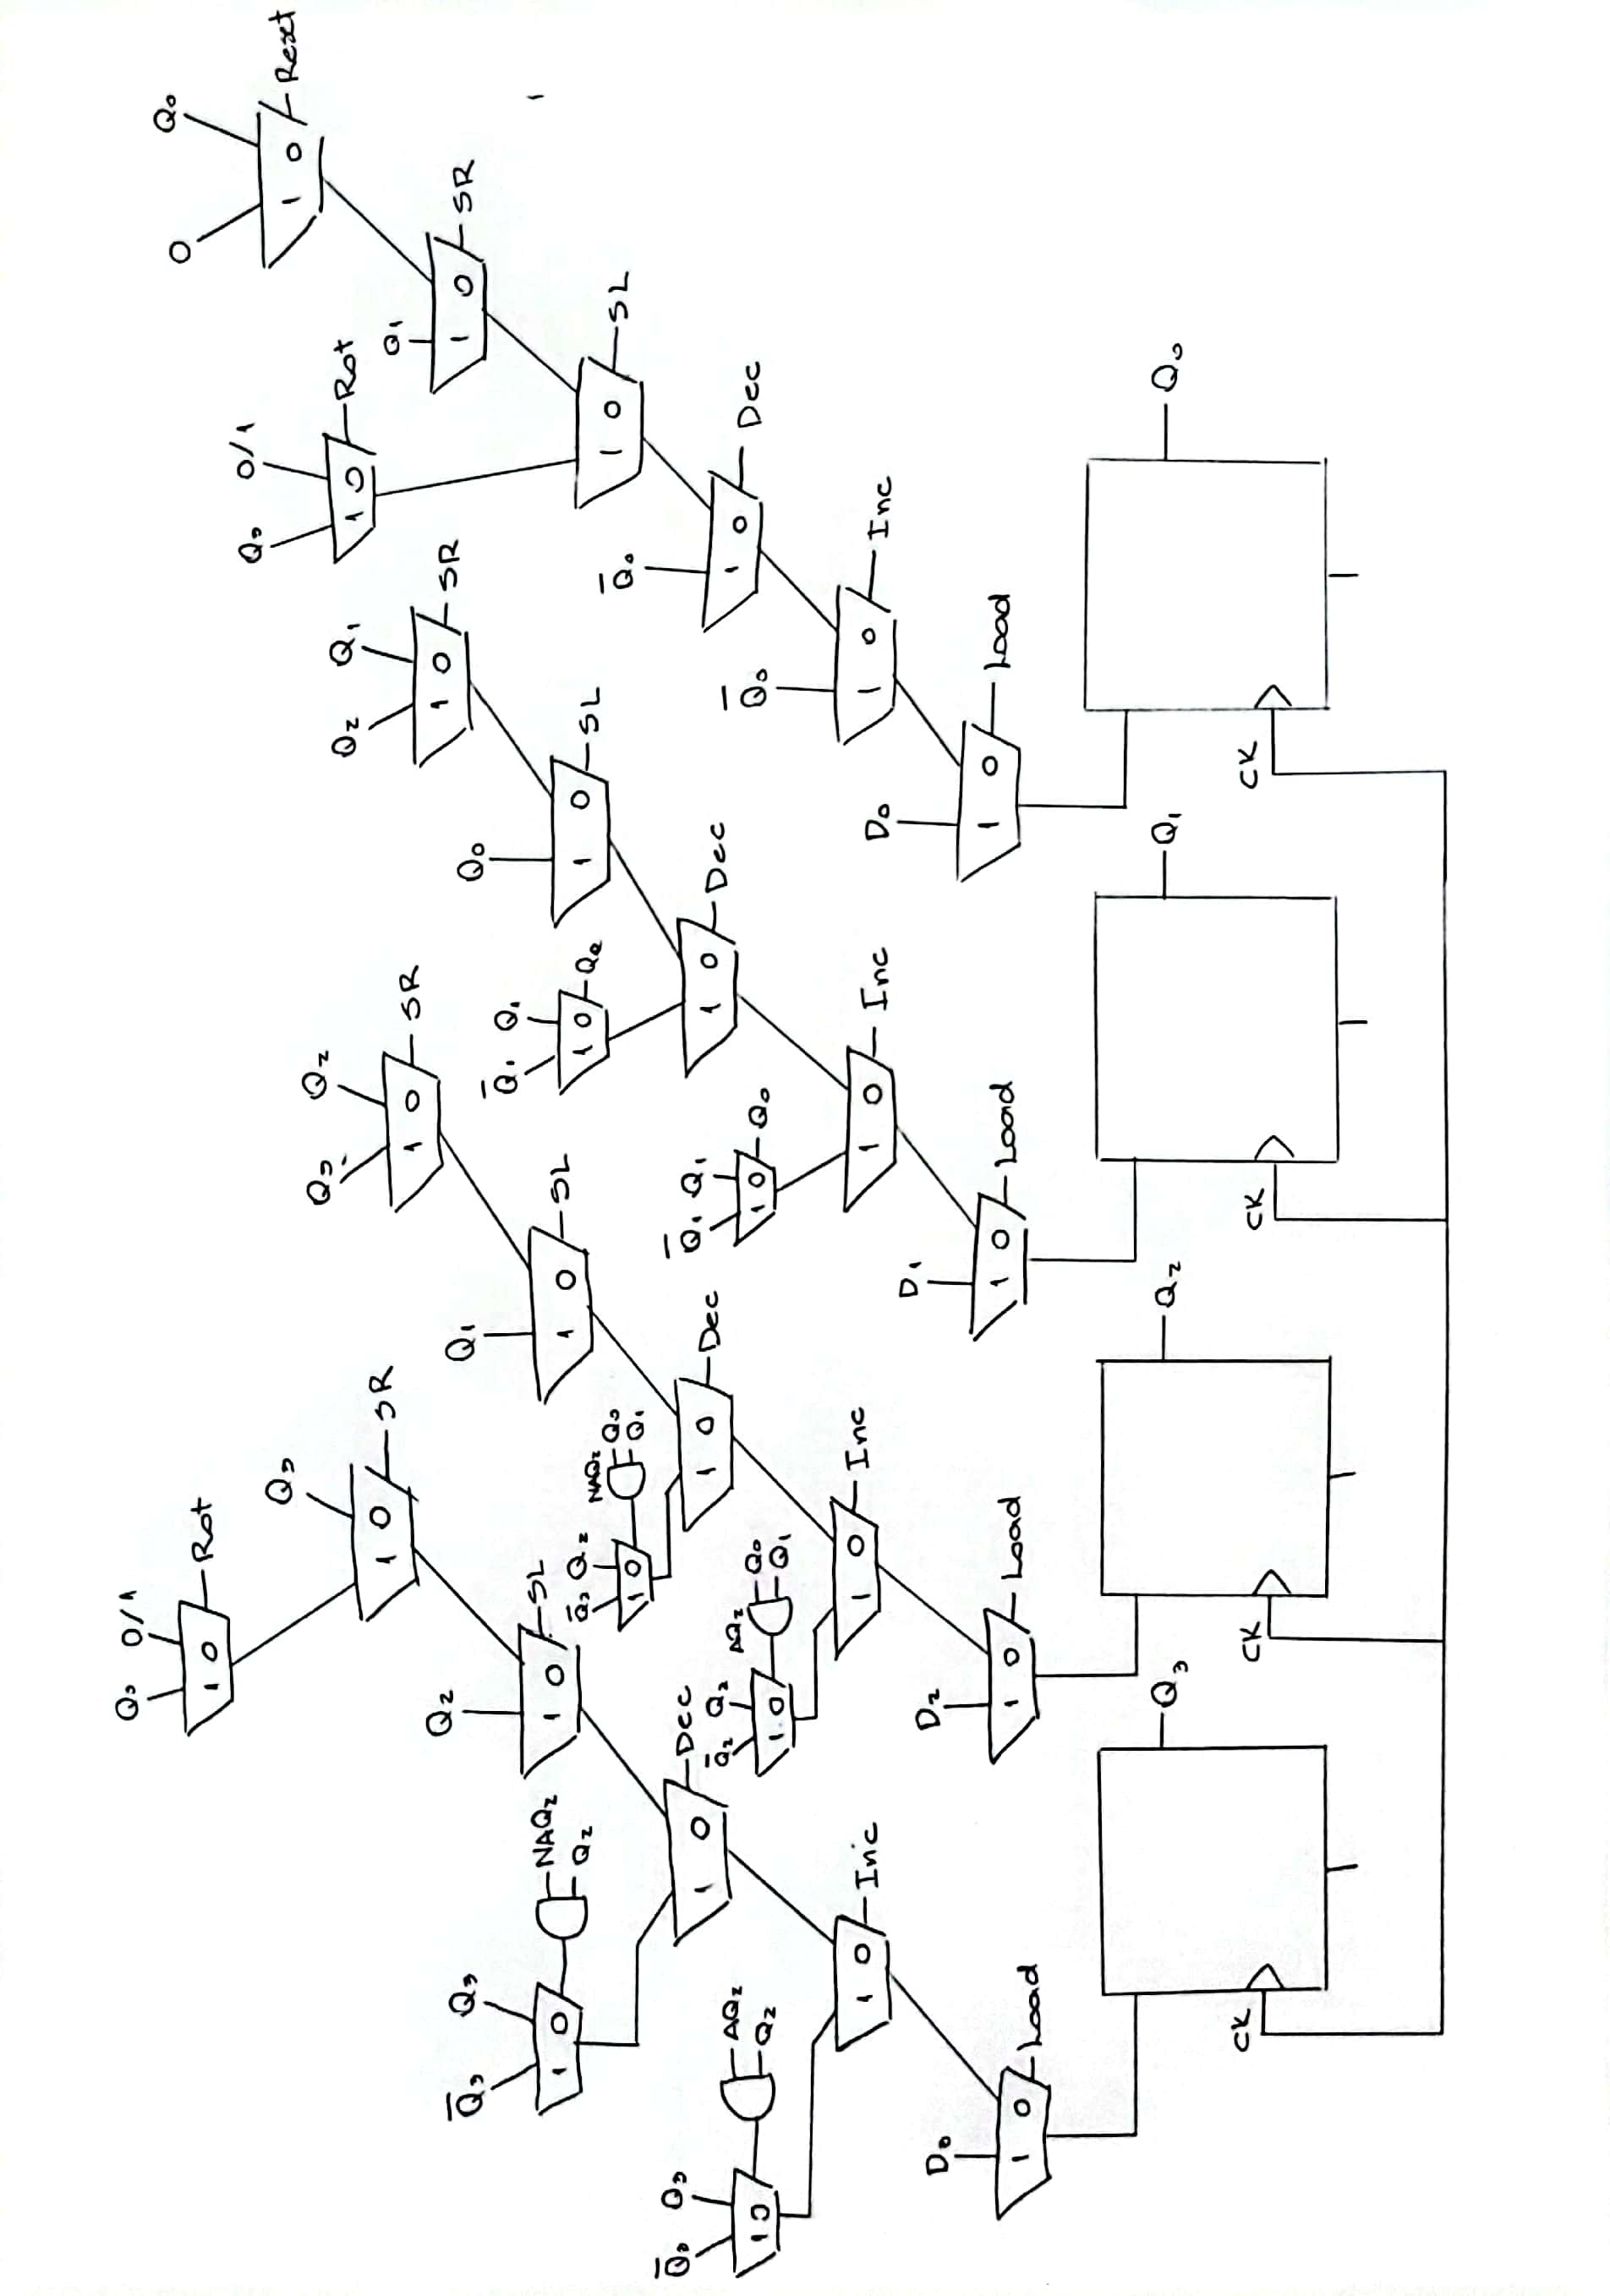 Q₀ 0/1
1 0 Rot
Q₃
1 0 SR
Q̅₃ Q₃
1 0 NAQ₂
Q₂
Q₂
1 0 SL
Q̅₃ Q₃
1 0 AQ₂
Q₂
1 0 Dec
1 0 Inc
D₀
1 0 Load
CK
Q₃
Q₃ Q₂
1 0 SR
Q₁
1 0 SL
Q̅₂ Q₂
1 0 NAQ₂
Q₀
Q₁
1 0 Dec
Q̅₂ Q₂
1 0 AQ₂
Q₀
Q₁
1 0 Inc
D₂
1 0 Load
CK
Q₂
Q₂ Q₁
1 0 SR
Q₀
1 0 SL
Q̅₁ Q₁
1 0 Q₀
1 0 Dec
Q̅₁ Q₁
1 0 Q₀
1 0 Inc
D₁
1 0 Load
CK
Q₁
0 Q₀
1 0 Reset
Q₃ 0/1
1 0 Rot
Q₁
1 0 SR
1 0 SL
Q̅₀
1 0 Dec
Q̅₀
1 0 Inc
D₀
1 0 Load
CK
Q₀